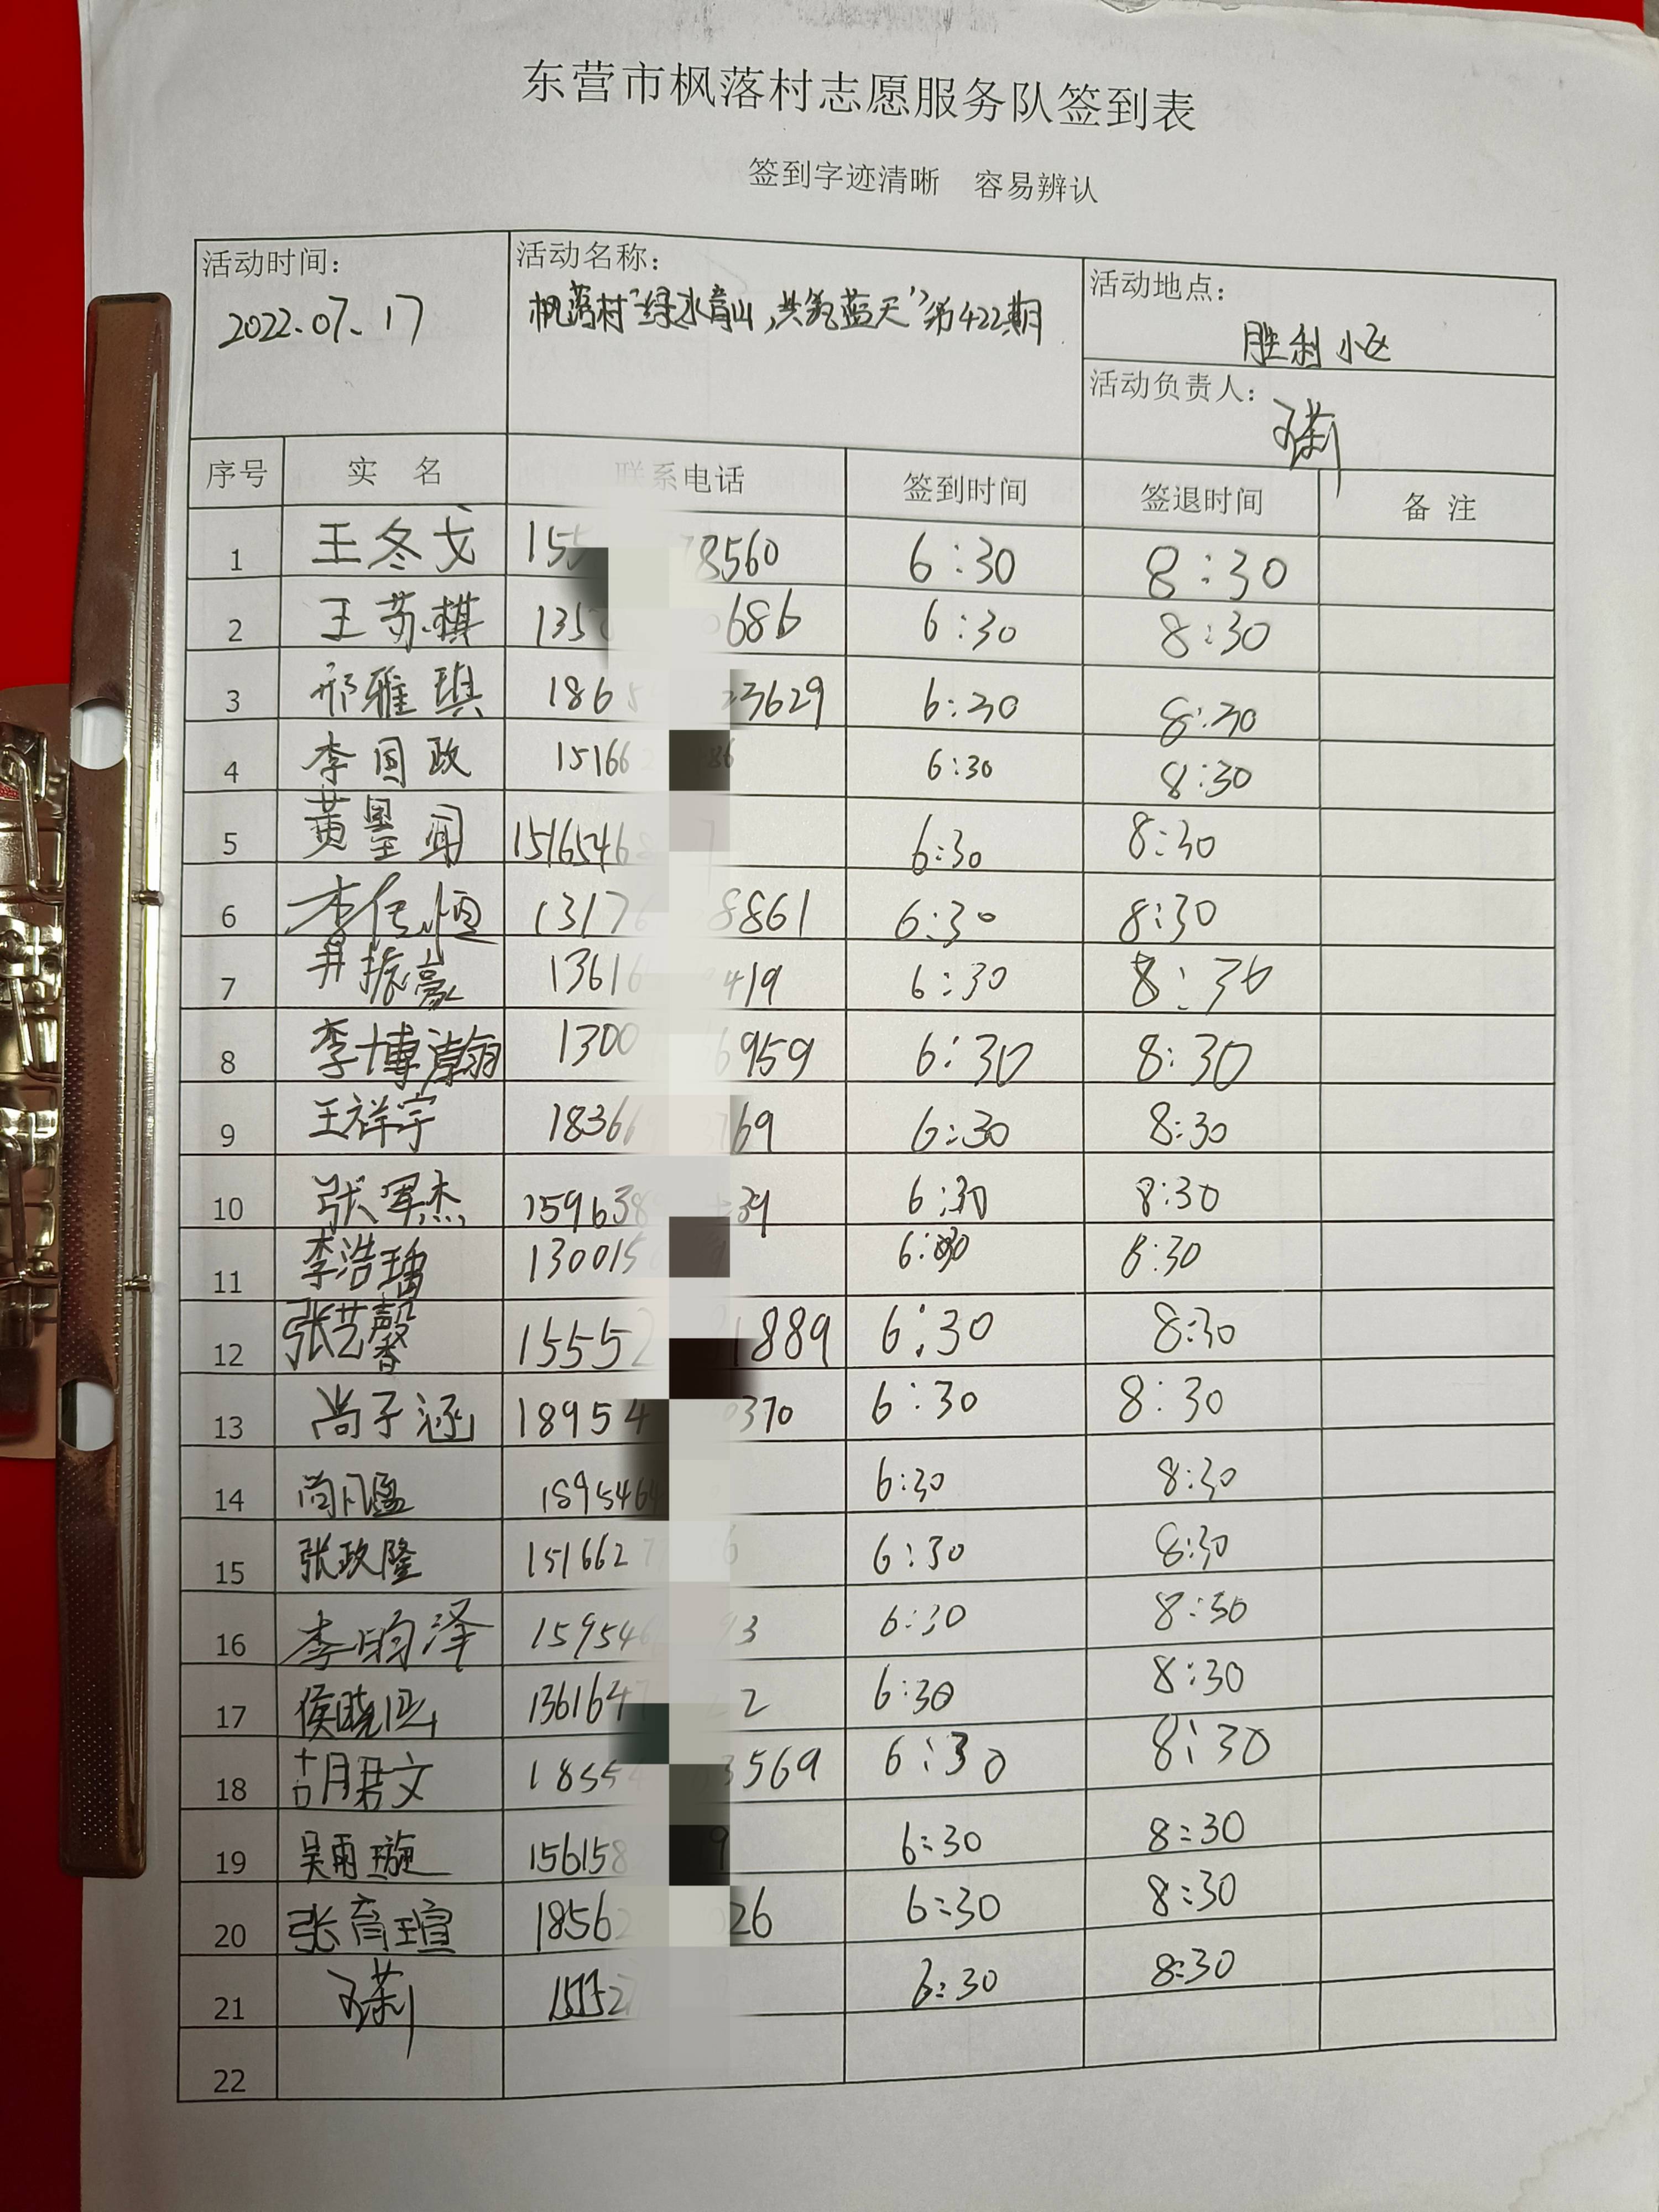 东营市枫落村志愿服务队签到表
签到字迹清晰 容易辨认
活动时间： 活动名称： 活动地点：
2022.07.17 枫落村“绿水青山,共筑蓝天”第422期 胜利小区
活动负责人： 王莉
序号 实 名 联系电话 签到时间 签退时间 备 注
1 王冬戈 155 8560 6:30 8:30
2 王苏棋 135 686 6:30 8:30
3 邢雅琪 186 3629 6:30 8:30
4 李国政 15166 6:30 8:30
5 黄墨闻 15165468 6:30 8:30
6 李任恒 1317 8861 6:30 8:30
7 井振豪 1361 419 6:30 8:30
8 李博瀚 1300 6959 6:30 8:30
9 王祥宇 1836 769 6:30 8:30
10 张军杰 159638 39 6:30 8:30
11 李浩瑀 130015 6:30 8:30
12 张艺馨 15552 1889 6:30 8:30
13 尚子涵 18954 0370 6:30 8:30
14 尚凡盈 1895464 6:30 8:30
15 张政隆 151662 6 6:30 8:30
16 李昀泽 15954 93 6:30 8:30
17 侯晓 136164 2 6:30 8:30
18 胡君文 1855 3569 6:30 8:30
19 吴雨璇 156158 9 6:30 8:30
20 张育瑄 1856 26 6:30 8:30
21 王莉 6:30 8:30
22